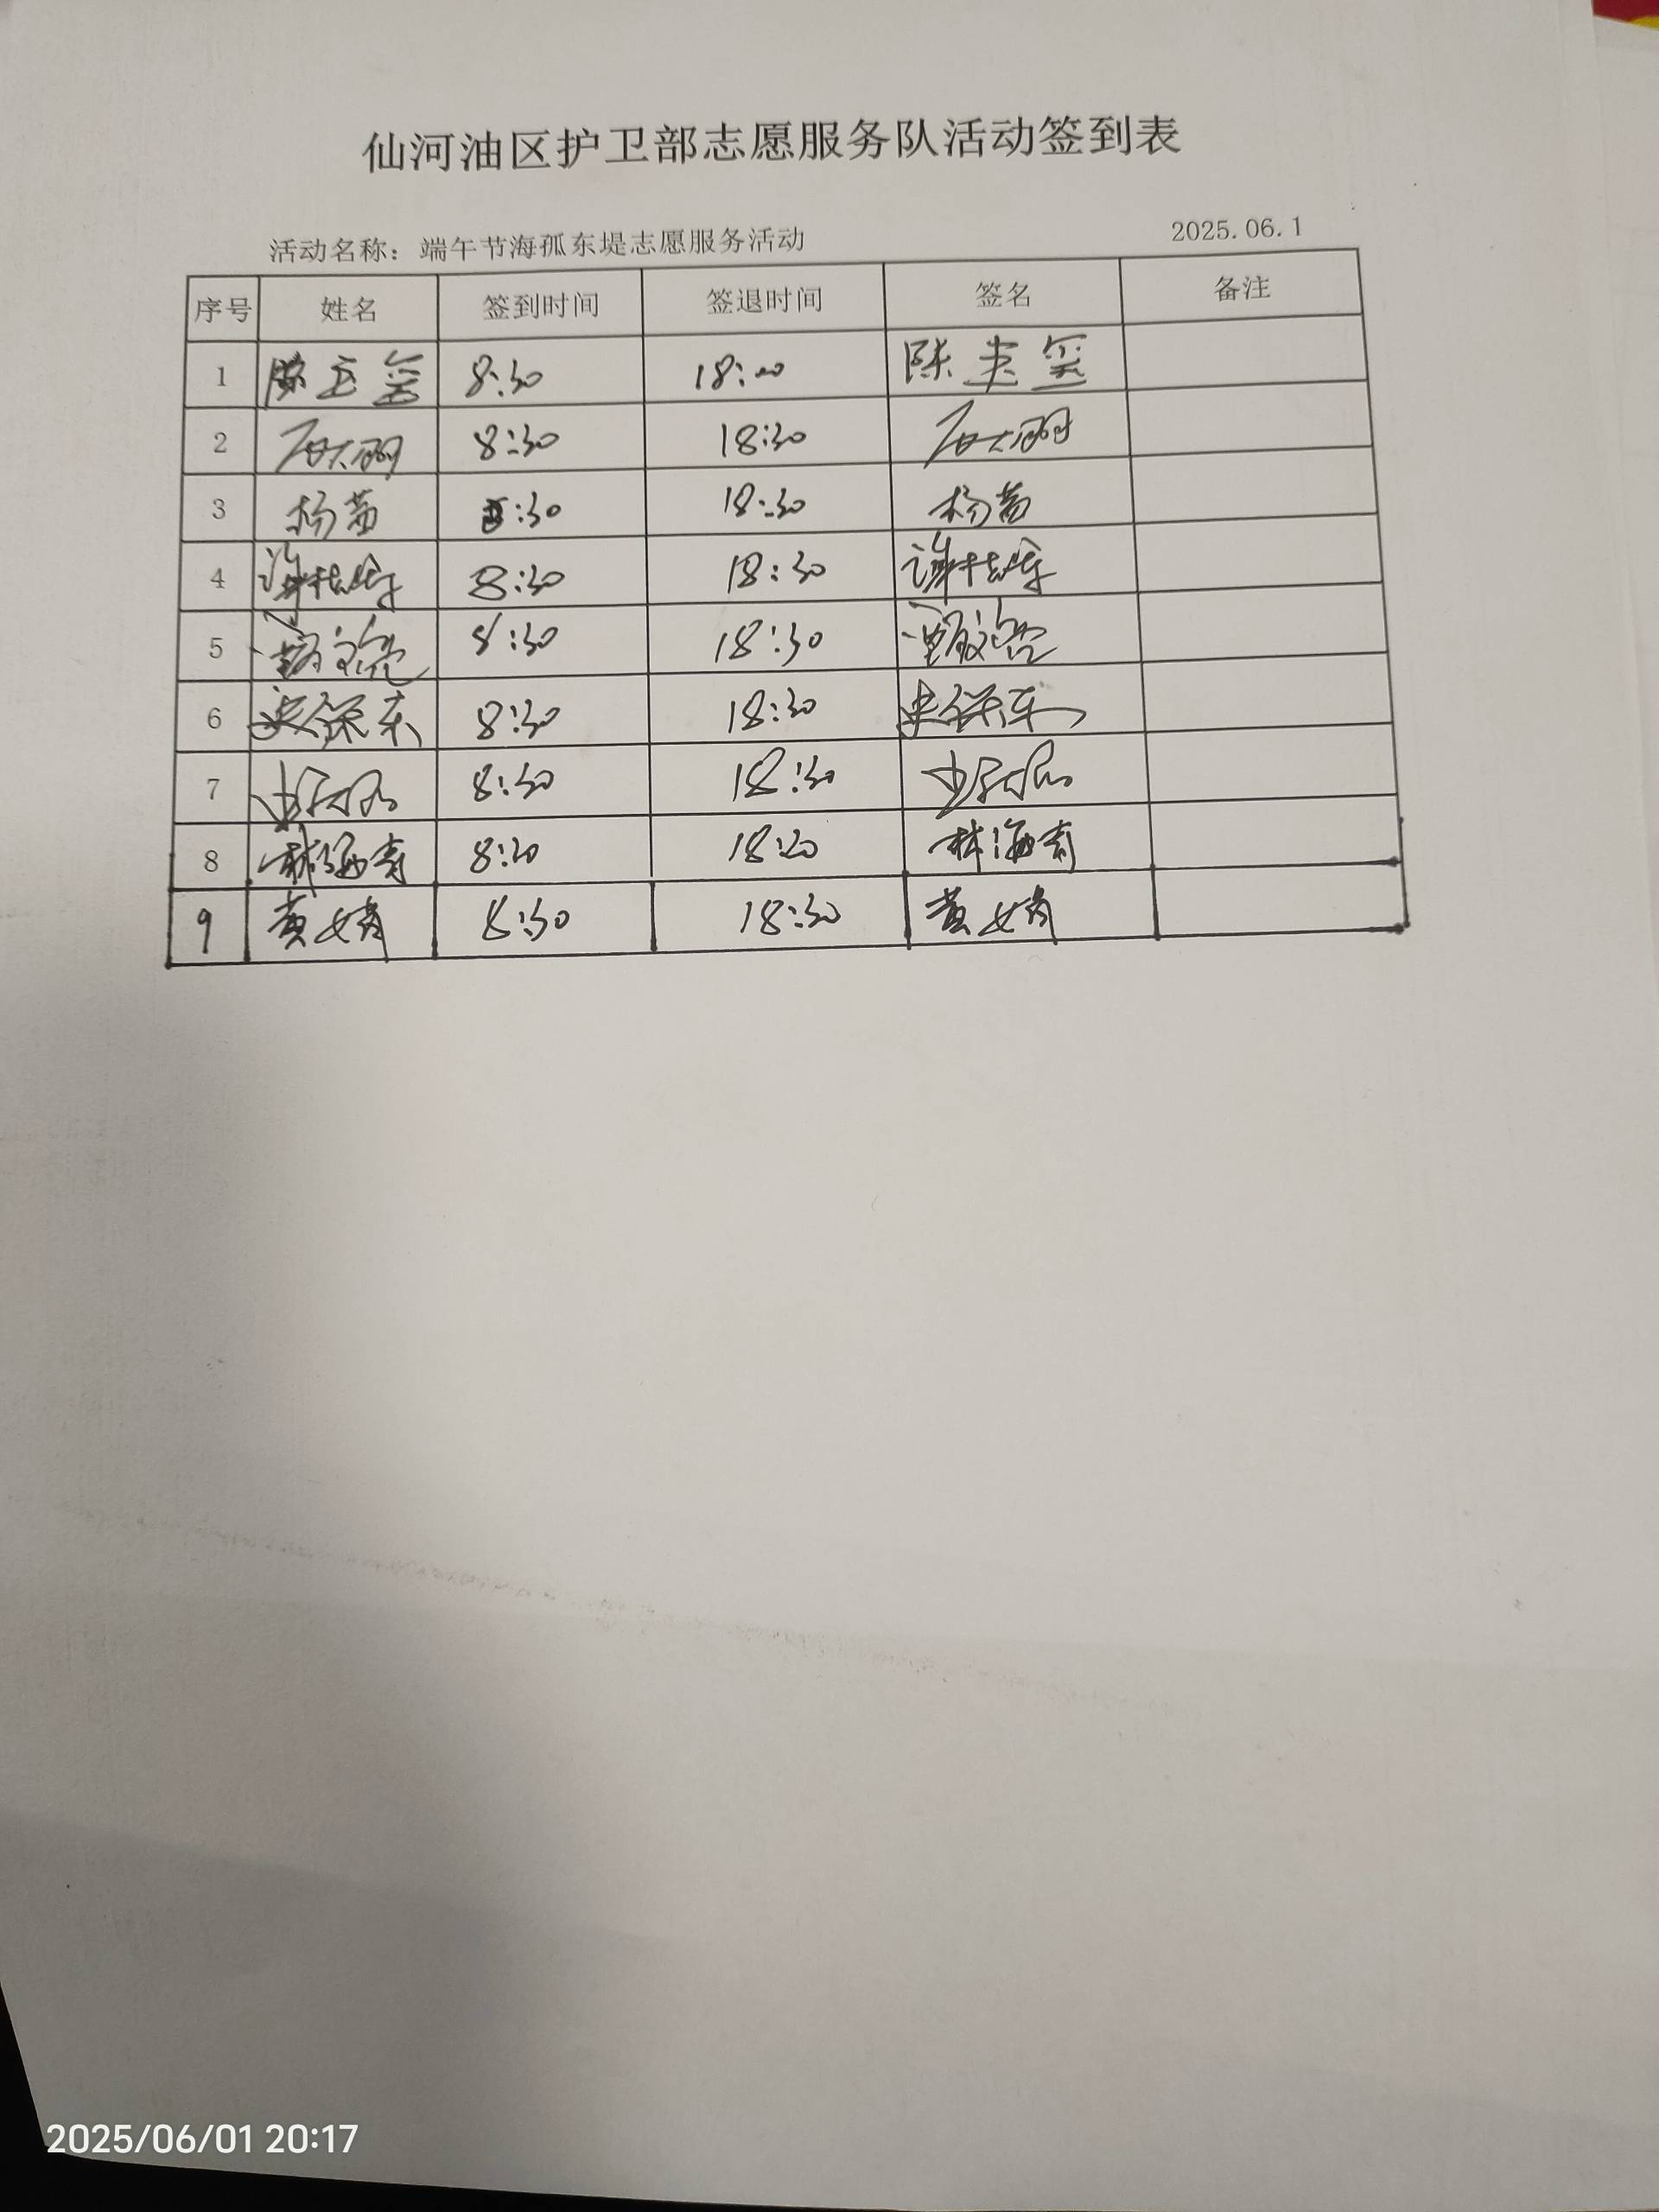 仙河油区护卫部志愿服务队活动签到表
活动名称：端午节海孤东堤志愿服务活动 2025.06.1
序号 姓名 签到时间 签退时间 签名 备注
1 陈 8:30 18: 陈
2 8:30 18:30
3 杨茜 8:30 18:30 杨茜
4 8:30 18:30
5 8:30 18:30
6 史保东 8:30 18:30 史保东
7 8:30 18:30
8 林海青 8:30 18:30 林海青
9 黄女青 8:30 18:30 黄女青
2025/06/01 20:17